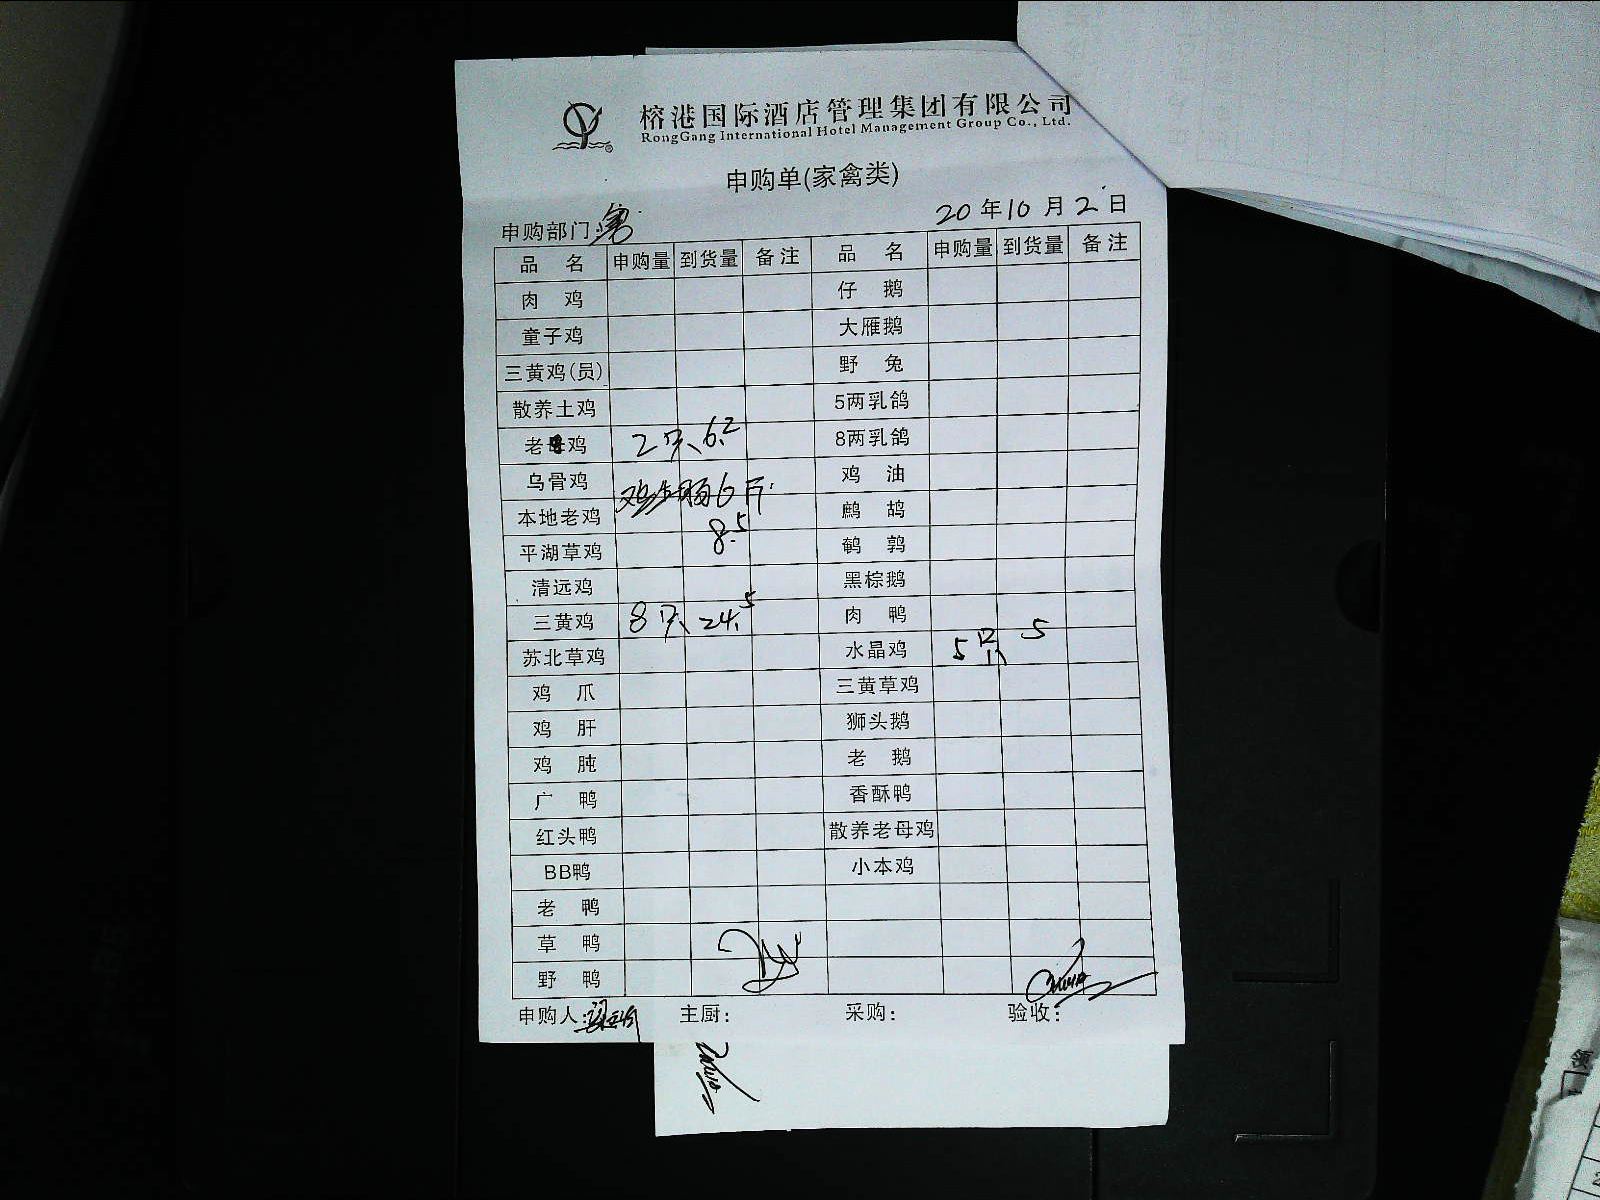 榕港国际酒店管理集团有限公司
RongGang International Hotel Management Group Co., Ltd.
申购单(家禽类)
申购部门: 20 年 10 月 2 日
品 名 申购量 到货量 备注 品 名 申购量 到货量 备注
肉 鸡 仔 鹅
童子鸡 大雁鹅
三黄鸡(员) 野 兔
散养土鸡 5两乳鸽
老母鸡 2只 6.2 8两乳鸽
乌骨鸡 鸡油
鸡生肠6斤
本地老鸡 鹧 鸪
平湖草鸡 8.5 鹌 鹑
清远鸡 黑棕鹅
三黄鸡 8只 24.5 肉 鸭
苏北草鸡 水晶鸡 5只 5
鸡 爪 三黄草鸡
鸡 肝 狮头鹅
鸡 肫 老 鹅
广 鸭 香酥鸭
红头鸭 散养老母鸡
BB鸭 小本鸡
老 鸭
草 鸭
野 鸭
申购人: 主厨: 采购: 验收:
领